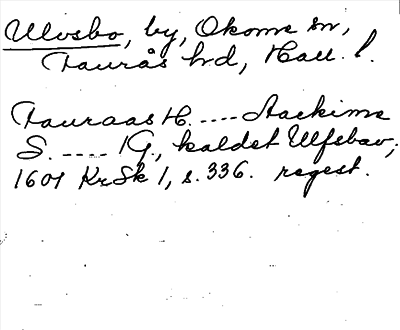 Ulvsbo, by, Okome sn,
Faurås hd, Hall. l.
Fauraas H. .... Aackime
S. .... 1 G., kaldet Ulfsbav,
1601 KrSk 1, s. 336. regest.